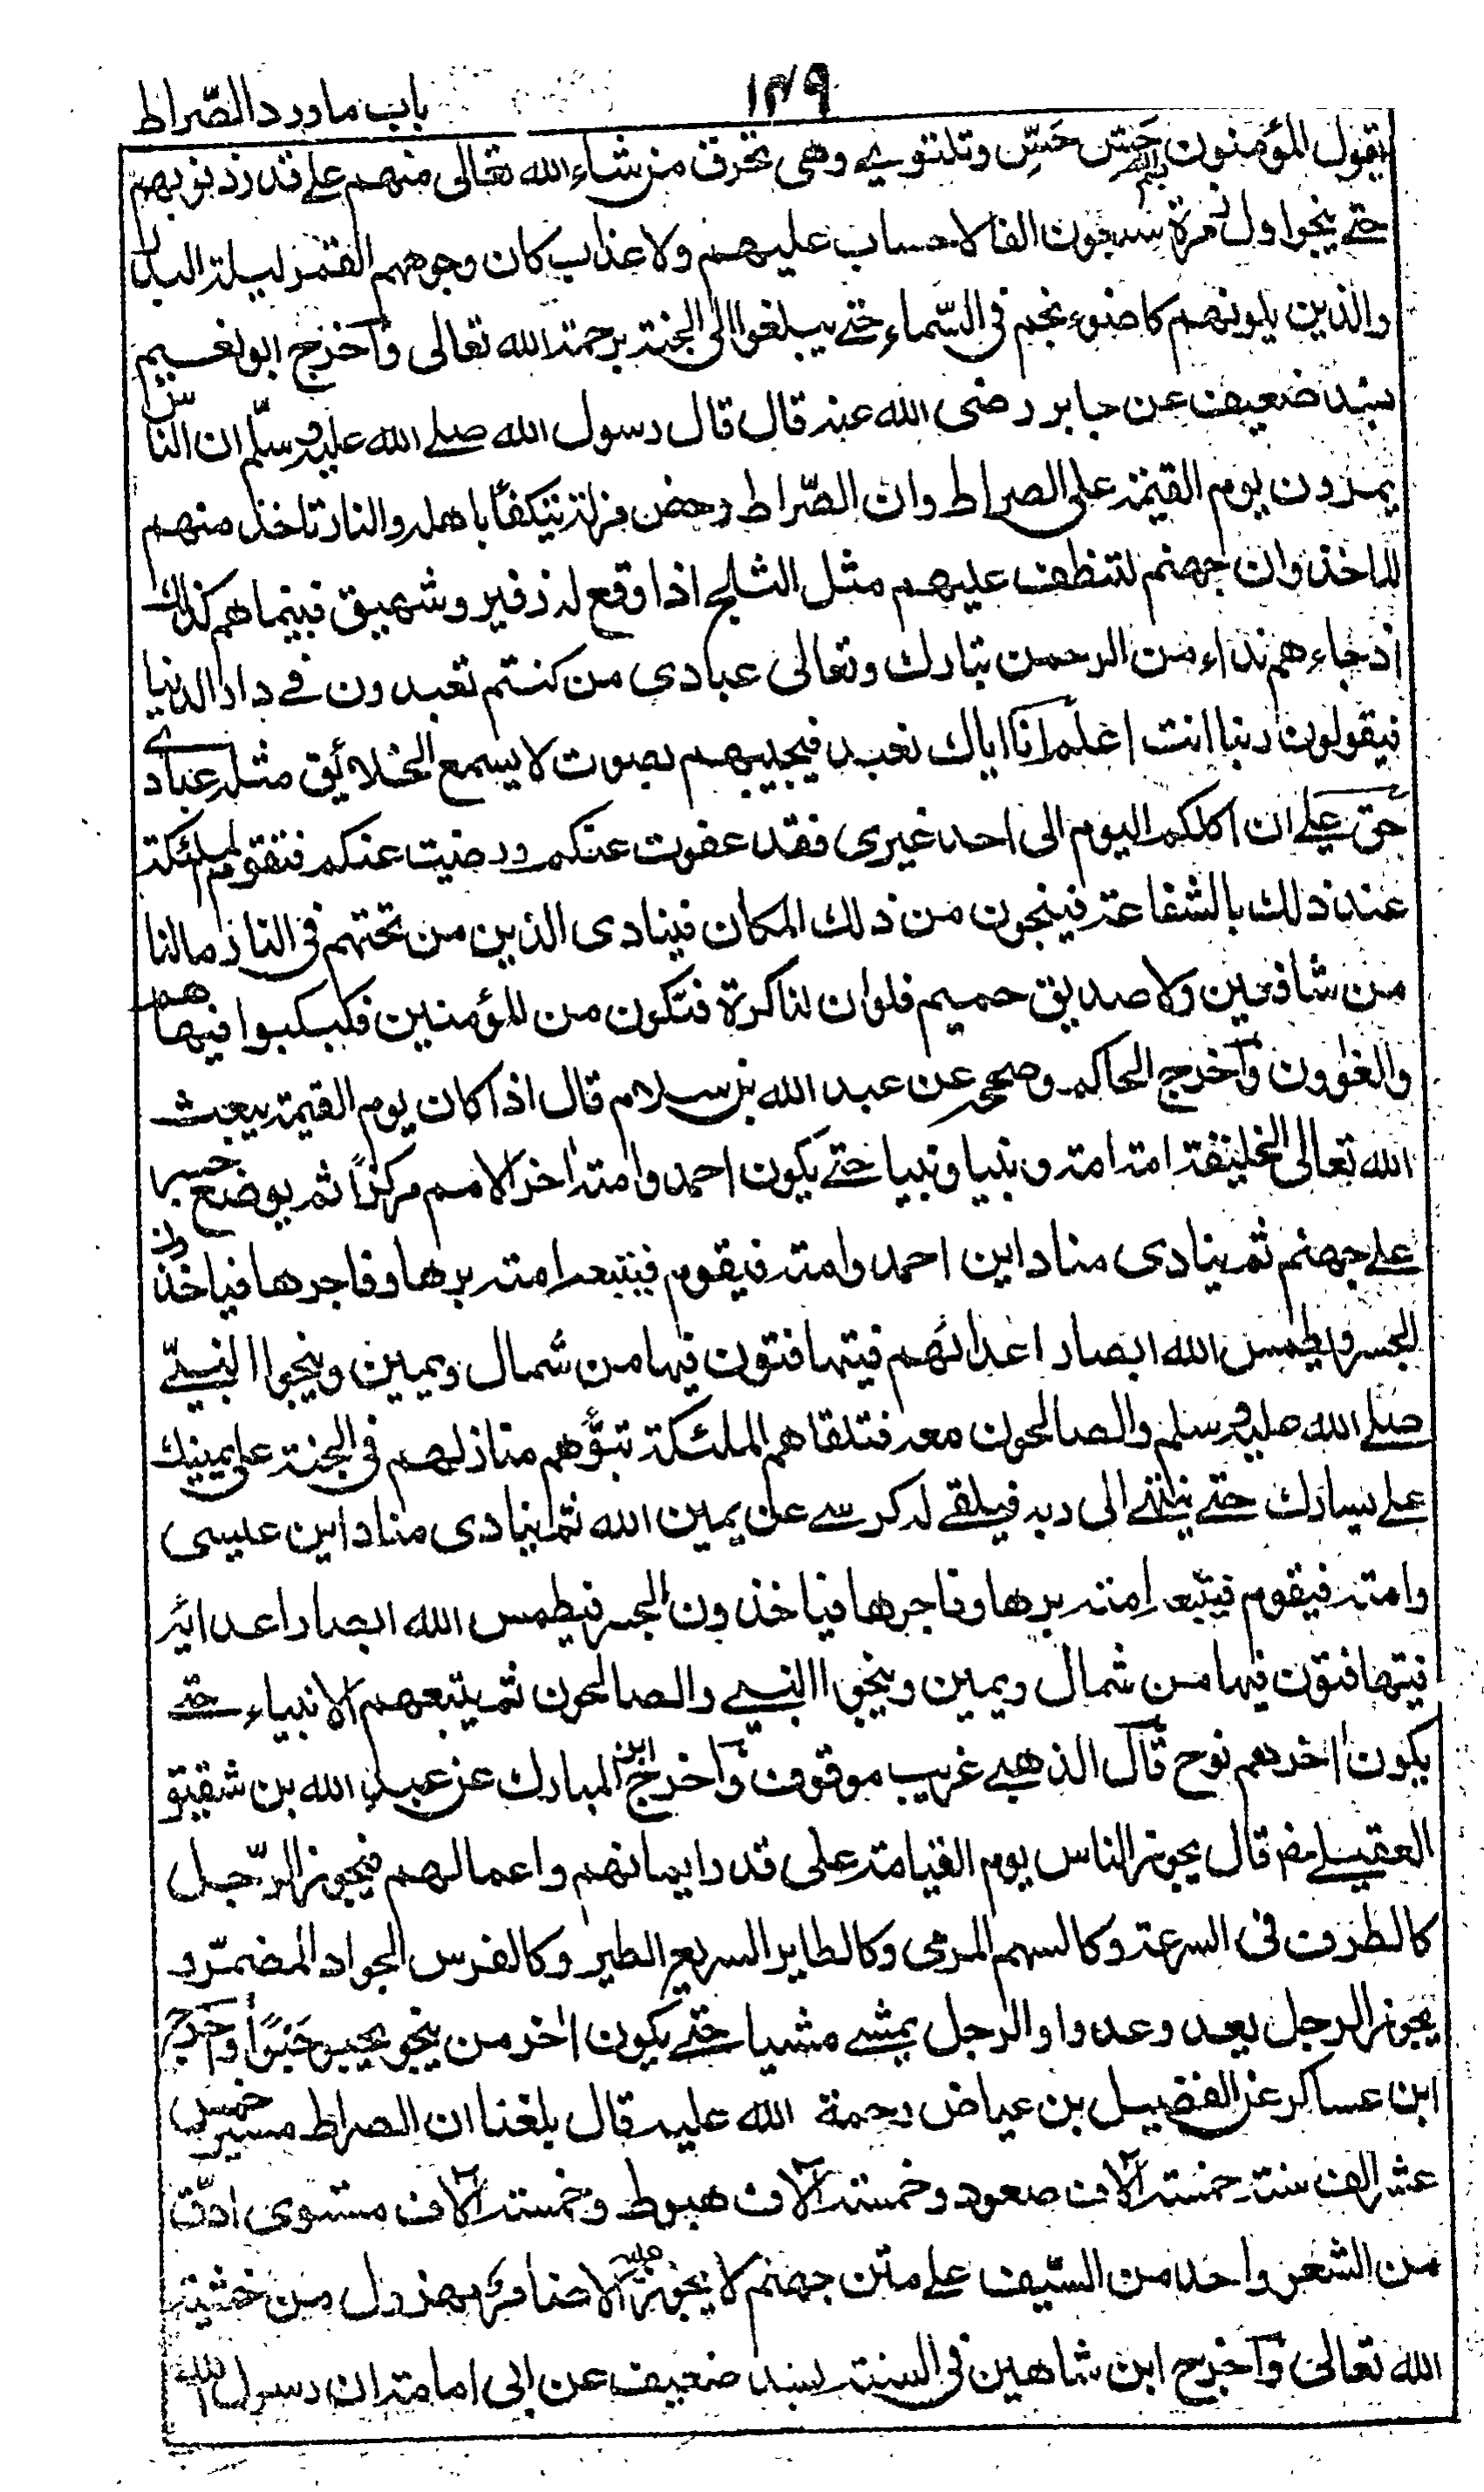 ١٤٩
باب ماورد الصّراط
يقول المؤمنون حَسِّ حَسِّ وتلتوي وهي تحرق من شاء الله تعالى منهم على قدر ذنوبهم
حتى ينجوا ول زمرة سبعون الفا لا حساب عليهم ولا عذاب كان وجوههم القمر ليلة البدر
والذين يلونهم كاضوء نجم في السّماء حتى يبلغوا الى الجنة برحمة الله تعالى وآخرج ابو نعيم
بسند ضعيف عن جابر رضى الله عنه قال قال رسول الله صلى الله عليه وسلّم ان الناس
يمرون يوم القيمة على الصراط وان الصّراط دحض مزلة يتكفأ باهله والنار تاخذ منهم
الماخذ وان جهنم لتنظف عليهم مثل الثلج اذا وقع له زفير وشهيق فبينما هم كذلك
اذ جاءهم نداء من الرحمن تبارك وتعالى عبادى من كنتم تعبدون فى دار الدنيا
فيقولون ربنا انت اعلم انا اياك نعبد فيجيبهم بصوت لا يسمع الخلائق مثله عبادى
حق على ان اكلكم اليوم الى احد غيرى فقد عفوت عنكم ورضيت عنكم فتقوم الملئكة
عند ذلك بالشفاعة فينجون من ذلك المكان فينادى الذين من تحتهم فى النار مالنا
من شافعين ولا صديق حميم فلو ان لنا كرة فنكون من المؤمنين فكبكبوا فيها هم
والغاوون وآخرج الحاكم وصححه عن عبد الله بن سلام قال اذا كان يوم القيمة يبعث
الله تعالى الخليقة امة امة ونبيا ونبيا حتى يكون احمد وامته اخر الامم مركزًا ثم يوضع جسر
على جهنم ثم ينادى مناد اين احمد وامته فيقوم فيتبعه امته برها وفاجرها فياخذون
الجسر ويطمس الله ابصار اعدائهم فيتهافتون فيها من شمال ويمين وينجوا النبيّ
صلى الله عليه وسلم والصالحون معه فتلقاهم الملئكة تبوّءهم منازلهم فى الجنة على يمينك
على يسارك حتى ينتهي الى ربه فيلقى له كرسى عن يمين الله ثم ينادى مناد اين عيسى
وامته فيقوم فيتبعه امته برها وفاجرها فياخذون الجسر فيطمس الله ابصار اعدائه
فيتهافتون فيها من شمال ويمين وينجوا النبي والصالحون ثم يتبعهم الانبياء حتى
يكون اخرهم نوح قال الذهبي غريب موقوف وآخرج ابن المبارك عن عبد الله بن شقيق
العقيلى رضـ قال يجوز الناس يوم القيامة على قدر ايمانهم واعمالهم فيجوز الرّجل
كالطرف فى السرعة وكالسهم المرمى وكالطاير السريع الطير وكالفرس الجواد المضمّر و
يجوز الرجل يعد وعدوا والرجل يمشى مشيا حتى يكون اخر من ينجو يحبو حَبْوًا وآخرج
ابن عساكر عن الفضيل بن عياض رحمة الله عليه قال بلغنا ان الصراط مسيرة خمس
عشر الف سنة خمسة آلاف صعود وخمسة آلاف هبوط وخمسة آلاف مستوى ادقّ
من الشعر واحد من السّيف على متن جهنم لا يجوز عليه الا ضامر مهزول من خشية
الله تعالى وآخرج ابن شاهين فى السنة بسند ضعيف عن ابى امامة ان رسول الله